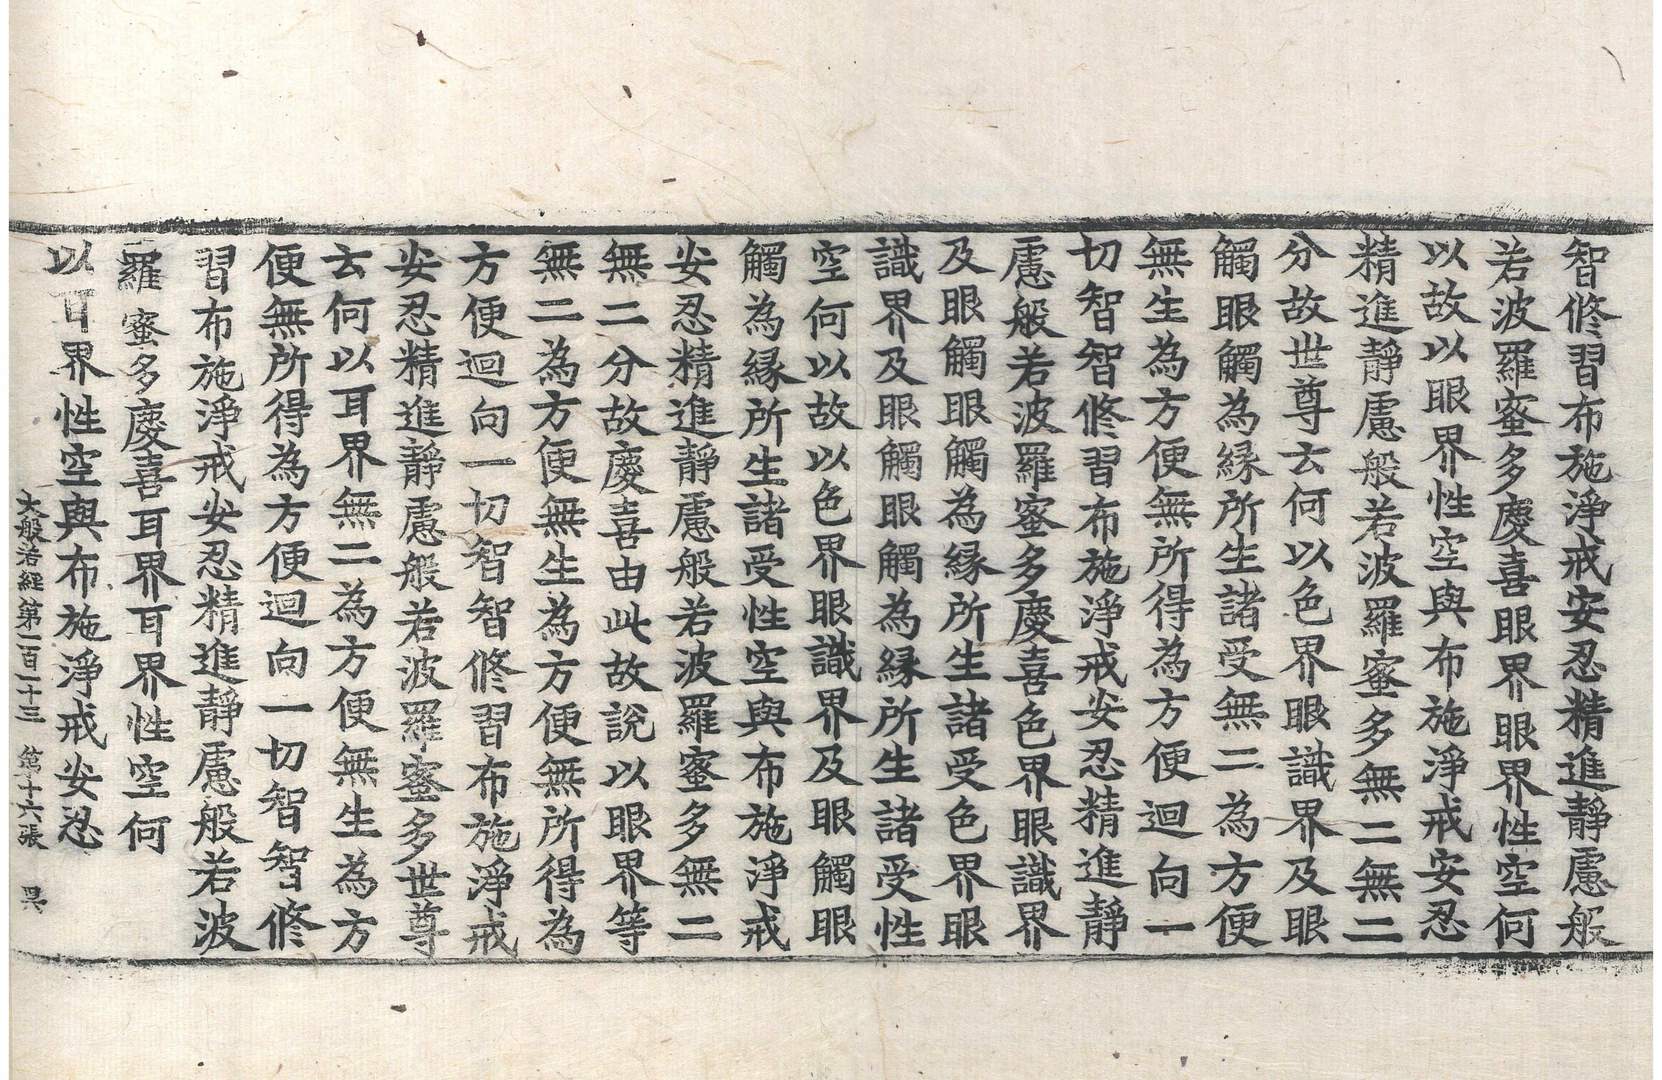 智修習布施淨戒安忍精進靜慮般
若波羅蜜多慶喜眼界眼界性空何
以故以眼界性空與布施淨戒安忍
精進靜慮般若波羅蜜多無二無二
分故世尊云何以色界眼識界及眼
觸眼觸為縁所生諸受無二為方便
無生為方便無所得為方便迴向一
切智智修習布施淨戒安忍精進靜
慮般若波羅蜜多慶喜色界眼識界
及眼觸眼觸為縁所生諸受色界眼
識界及眼觸眼觸為縁所生諸受性
空何以故以色界眼識界及眼觸眼
觸為縁所生諸受性空與布施淨戒
安忍精進靜慮般若波羅蜜多無二
無二分故慶喜由此故說以眼界等
無二為方便無生為方便無所得為
方便迴向一切智智修習布施淨戒
安忍精進靜慮般若波羅蜜多世尊
云何以耳界無二為方便無生為方
便無所得為方便迴向一切智智修
習布施淨戒安忍精進靜慮般若波
羅蜜多慶喜耳界耳界性空何
以耳界性空與布施淨戒安忍
大般若經第一百一十三 第十六張 昃